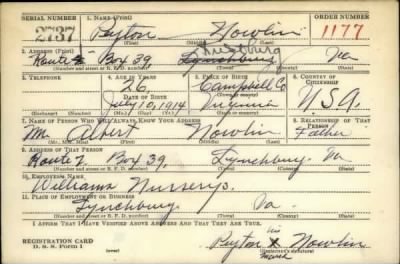 SERIAL NUMBER 1. NAME (Print) ORDER NUMBER
2737 Peyton Nowlin 1177
(First) (Middle) (Last)
2. ADDRESS (Print)
Route 2 Box 39 Lynchburg Va
(Number and street or R. F. D. number) (Town) (County) (State)
3. TELEPHONE 4. AGE IN YEARS 5. PLACE OF BIRTH 6. COUNTRY OF CITIZENSHIP
26 Campbell Co
DATE OF BIRTH (Town or county)
July 10, 1914 Virginia U.S.A.
(Exchange) (No.) (Mo.) (Day) (Yr.) (State or country)
7. NAME OF PERSON WHO WILL ALWAYS KNOW YOUR ADDRESS 8. RELATIONSHIP OF THAT PERSON
Mr. Albert Nowlin Father
(Mr., Mrs., Miss) (First) (Middle) (Last)
9. ADDRESS OF THAT PERSON
Route 2 Box 39. Lynchburg Va.
(Number and street or R. F. D. number) (Town) (County) (State)
10. EMPLOYER'S NAME
Williams Nursery's.
11. PLACE OF EMPLOYMENT OR BUSINESS
Lynchburg Va.
(Number and street or R. F. D. number) (Town) (County) (State)
I AFFIRM THAT I HAVE VERIFIED ABOVE ANSWERS AND THAT THEY ARE TRUE.
his
REGISTRATION CARD Peyton X Nowlin
D. S. S. Form 1 mark (Registrant's signature)